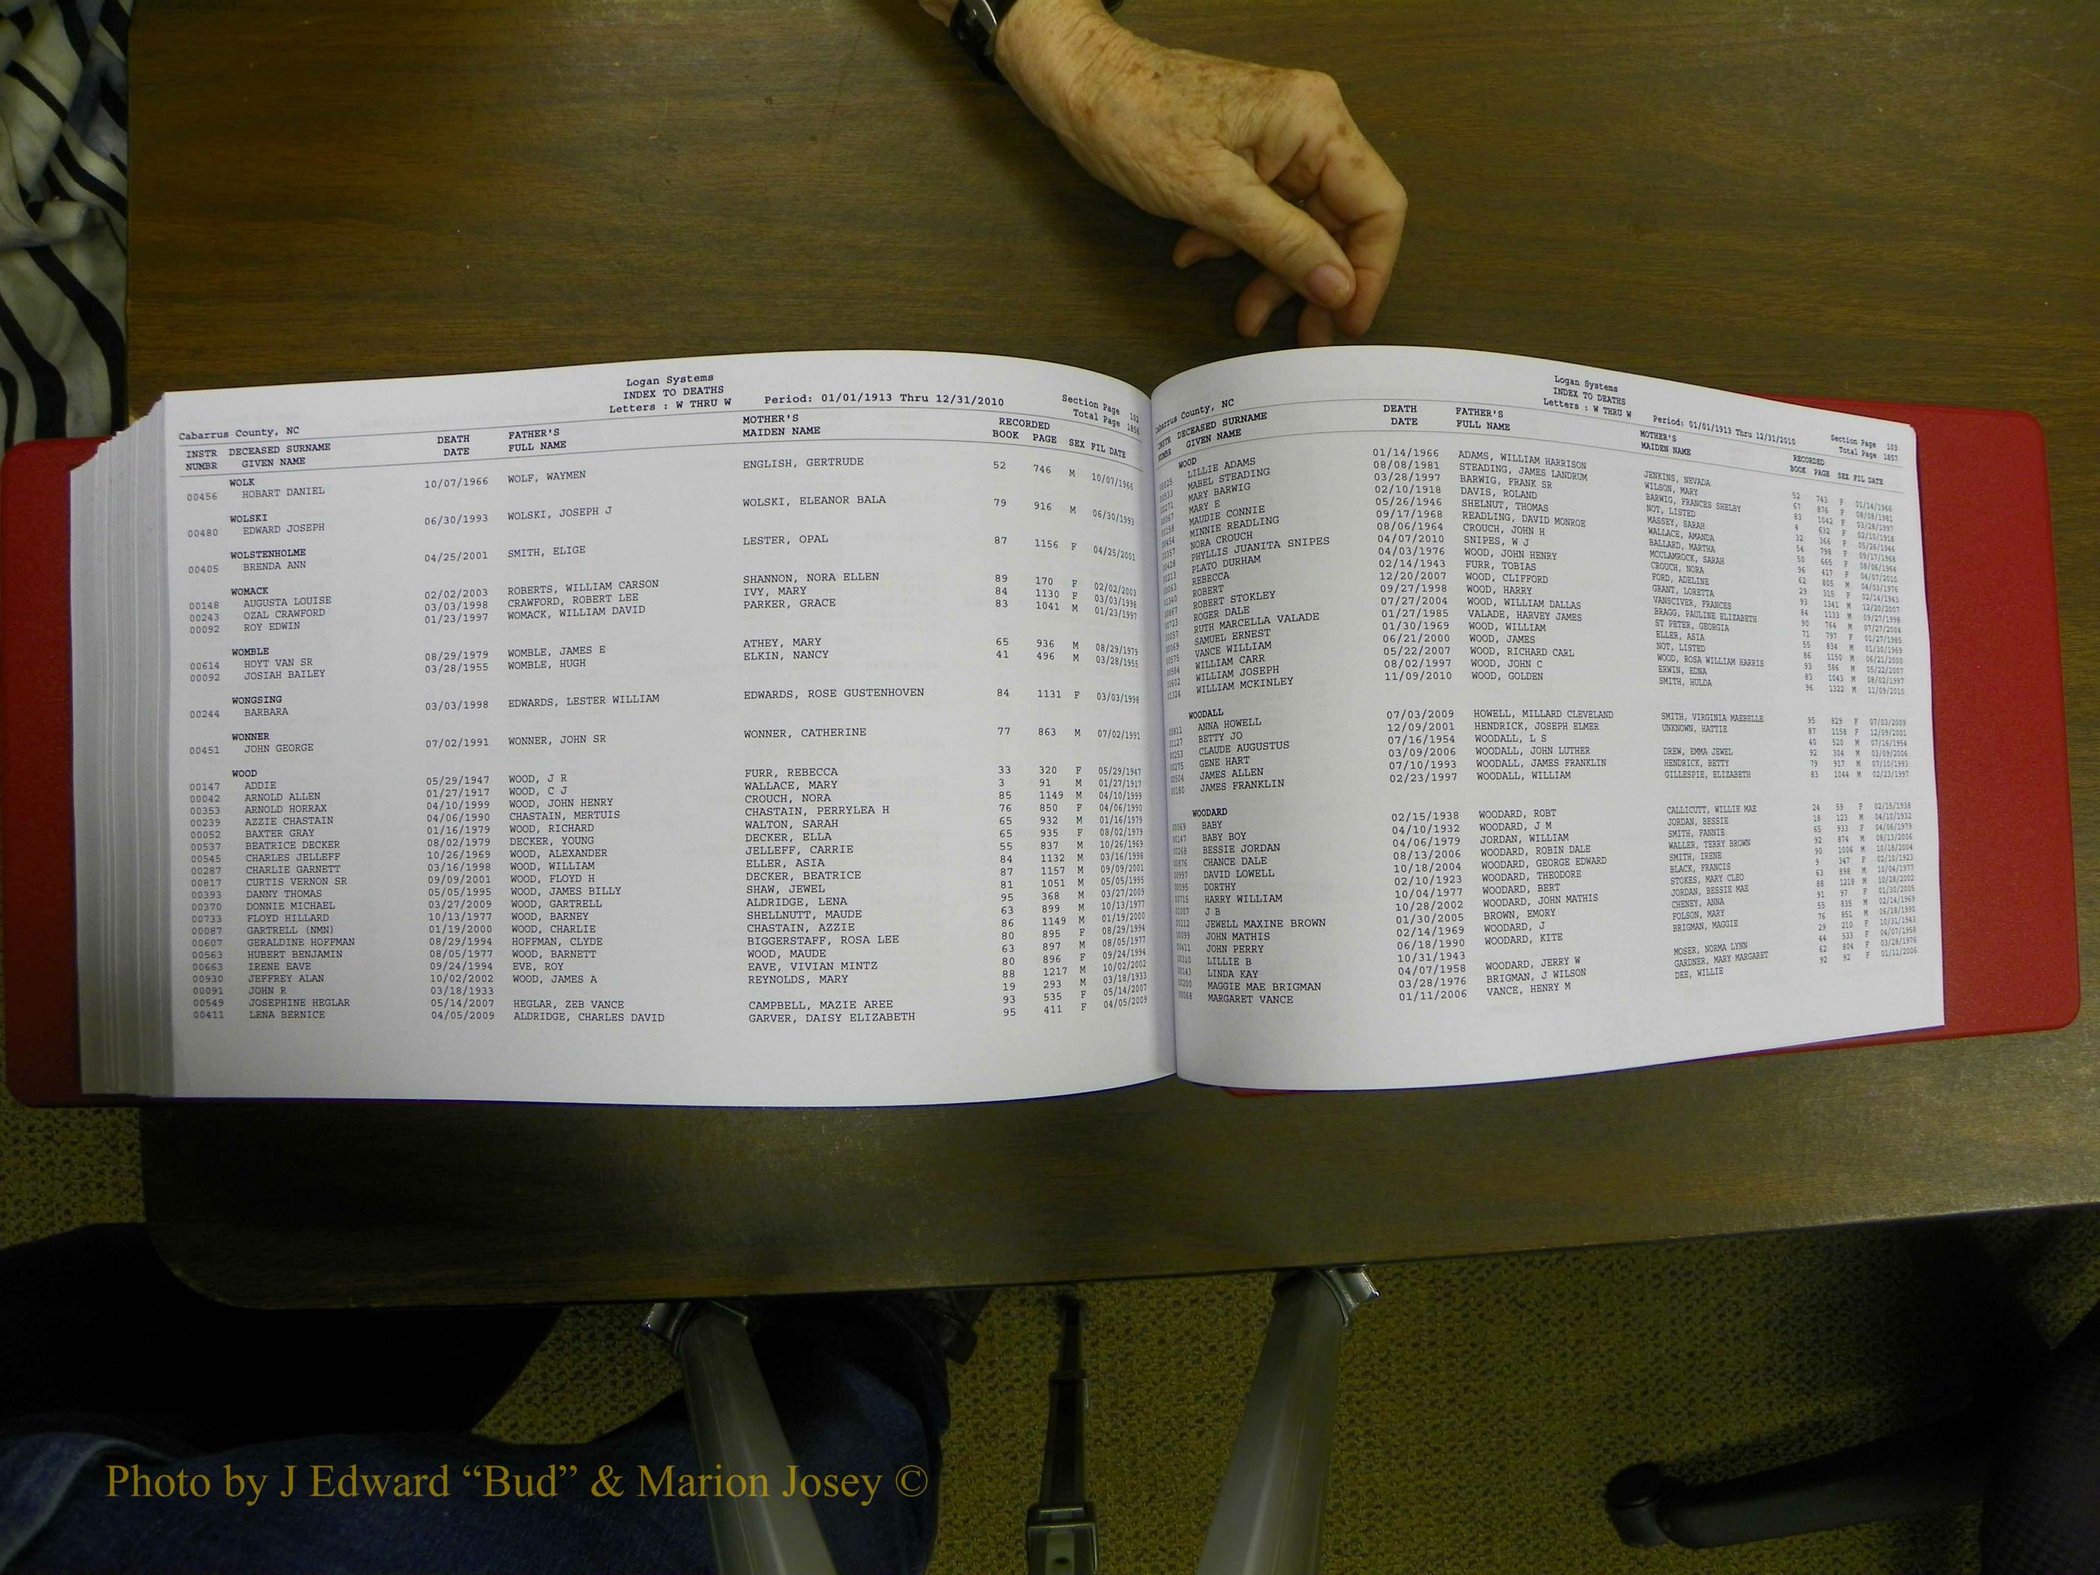 Logan Systems
INDEX TO DEATHS
Letters : W THRU W Period: 01/01/1913 Thru 12/31/2010
Section Page 102
Total Page 1856
Cabarrus County, NC
INSTR DECEASED SURNAME DEATH FATHER'S MOTHER'S RECORDED
NUMBR GIVEN NAME DATE FULL NAME MAIDEN NAME BOOK PAGE SEX FIL DATE
WOLK
00456 HOBART DANIEL 10/07/1966 WOLF, WAYMEN ENGLISH, GERTRUDE 52 746 M 10/07/1966
WOLSKI
00480 EDWARD JOSEPH 06/30/1993 WOLSKI, JOSEPH J WOLSKI, ELEANOR BALA 79 916 M 06/30/1993
WOLSTENHOLME
00405 BRENDA ANN 04/25/2001 SMITH, ELIGE LESTER, OPAL 87 1156 F 04/25/2001
WOMACK
00148 AUGUSTA LOUISE 02/02/2003 ROBERTS, WILLIAM CARSON SHANNON, NORA ELLEN 89 170 F 02/02/2003
00243 OZAL CRAWFORD 03/03/1998 CRAWFORD, ROBERT LEE IVY, MARY 84 1130 F 03/03/1998
00092 ROY EDWIN 01/23/1997 WOMACK, WILLIAM DAVID PARKER, GRACE 83 1041 M 01/23/1997
WOMBLE
00614 HOYT VAN SR 08/29/1979 WOMBLE, JAMES E ATHEY, MARY 65 936 M 08/29/1979
00092 JOSIAH BAILEY 03/28/1955 WOMBLE, HUGH ELKIN, NANCY 41 496 M 03/28/1955
WONGSING
00244 BARBARA 03/03/1998 EDWARDS, LESTER WILLIAM EDWARDS, ROSE GUSTENHOVEN 84 1131 F 03/03/1998
WONNER
00451 JOHN GEORGE 07/02/1991 WONNER, JOHN SR WONNER, CATHERINE 77 863 M 07/02/1991
WOOD
00147 ADDIE 05/29/1947 WOOD, J R FURR, REBECCA 33 320 F 05/29/1947
00042 ARNOLD ALLEN 01/27/1917 WOOD, C J WALLACE, MARY 3 91 M 01/27/1917
00353 ARNOLD HORRAX 04/10/1999 WOOD, JOHN HENRY CROUCH, NORA 85 1149 M 04/10/1999
00239 AZZIE CHASTAIN 04/06/1990 CHASTAIN, MERTUIS CHASTAIN, PERRYLEA H 76 850 F 04/06/1990
00052 BAXTER GRAY 01/16/1979 WOOD, RICHARD WALTON, SARAH 65 932 M 01/16/1979
00537 BEATRICE DECKER 08/02/1979 DECKER, YOUNG DECKER, ELLA 65 935 F 08/02/1979
00545 CHARLES JELLEFF 10/26/1969 WOOD, ALEXANDER JELLEFF, CARRIE 55 837 M 10/26/1969
00287 CHARLIE GARNETT 03/16/1998 WOOD, WILLIAM ELLER, ASIA 84 1132 M 03/16/1998
00817 CURTIS VERNON SR 09/09/2001 WOOD, FLOYD H DECKER, BEATRICE 87 1157 M 09/09/2001
00393 DANNY THOMAS 05/05/1995 WOOD, JAMES BILLY SHAW, JEWEL 81 1051 M 05/05/1995
00370 DONNIE MICHAEL 03/27/2009 WOOD, GARTRELL ALDRIDGE, LENA 95 368 M 03/27/2009
00733 FLOYD HILLARD 10/13/1977 WOOD, BARNEY SHELLNUTT, MAUDE 63 899 M 10/13/1977
00087 GARTRELL (NMN) 01/19/2000 WOOD, CHARLIE CHASTAIN, AZZIE 86 1149 M 01/19/2000
00607 GERALDINE HOFFMAN 08/29/1994 HOFFMAN, CLYDE BIGGERSTAFF, ROSA LEE 80 895 F 08/29/1994
00563 HUBERT BENJAMIN 08/05/1977 WOOD, BARNETT WOOD, MAUDE 63 897 M 08/05/1977
00663 IRENE EAVE 09/24/1994 EVE, ROY EAVE, VIVIAN MINTZ 80 896 F 09/24/1994
00930 JEFFREY ALAN 10/02/2002 WOOD, JAMES A REYNOLDS, MARY 88 1217 M 10/02/2002
00091 JOHN R 03/18/1933 19 293 M 03/18/1933
00549 JOSEPHINE HEGLAR 05/14/2007 HEGLAR, ZEB VANCE CAMPBELL, MAZIE AREE 93 535 F 05/14/2007
00411 LENA BERNICE 04/05/2009 ALDRIDGE, CHARLES DAVID GARVER, DAISY ELIZABETH 95 411 F 04/05/2009
Logan Systems
INDEX TO DEATHS
Letters : W THRU W Period: 01/01/1913 Thru 12/31/2010
Section Page 103
Total Page 1857
Cabarrus County, NC
INSTR DECEASED SURNAME DEATH FATHER'S MOTHER'S RECORDED
NUMBR GIVEN NAME DATE FULL NAME MAIDEN NAME BOOK PAGE SEX FIL DATE
WOOD
00025 LILLIE ADAMS 01/14/1966 ADAMS, WILLIAM HARRISON JENKINS, NEVADA 52 743 F 01/14/1966
00533 MABEL STEADING 08/08/1981 STEADING, JAMES LANDRUM WILSON, MARY 67 876 F 08/08/1981
00271 MARY BARWIG 03/28/1997 BARWIG, FRANK SR BARWIG, FRANCES SHELBY 83 1042 F 03/28/1997
00067 MARY E 02/10/1918 DAVIS, ROLAND NOT, LISTED 4 632 F 02/10/1918
00158 MAUDIE CONNIE 05/26/1946 SHELNUT, THOMAS MASSEY, SARAH 32 366 F 05/26/1946
00454 MINNIE READLING 09/17/1968 READLING, DAVID MONROE WALLACE, AMANDA 54 798 F 09/17/1968
00357 NORA CROUCH 08/06/1964 CROUCH, JOHN H BALLARD, MARTHA 50 665 F 08/06/1964
00428 PHYLLIS JUANITA SNIPES 04/07/2010 SNIPES, W J MCCLAMROCK, SARAH 96 417 F 04/07/2010
00213 PLATO DURHAM 04/03/1976 WOOD, JOHN HENRY CROUCH, NORA 62 805 M 04/03/1976
00063 REBECCA 02/14/1943 FURR, TOBIAS FORD, ADELINE 29 315 F 02/14/1943
01340 ROBERT 12/20/2007 WOOD, CLIFFORD GRANT, LORETTA 93 1341 M 12/20/2007
00887 ROBERT STOKLEY 09/27/1998 WOOD, HARRY VANSCIVER, FRANCES 84 1133 M 09/27/1998
00723 ROGER DALE 07/27/2004 WOOD, WILLIAM DALLAS BRAGG, PAULINE ELIZABETH 90 764 M 07/27/2004
00057 RUTH MARCELLA VALADE 01/27/1985 VALADE, HARVEY JAMES ST PETER, GEORGIA 71 797 F 01/27/1985
00069 SAMUEL ERNEST 01/30/1969 WOOD, WILLIAM ELLER, ASIA 55 834 M 01/30/1969
00575 VANCE WILLIAM 06/21/2000 WOOD, JAMES NOT, LISTED 86 1150 M 06/21/2000
00584 WILLIAM CARR 05/22/2007 WOOD, RICHARD CARL WOOD, ROSA WILLIAM HARRIS 93 586 M 05/22/2007
00602 WILLIAM JOSEPH 08/02/1997 WOOD, JOHN C ERWIN, EDNA 83 1043 M 08/02/1997
01324 WILLIAM MCKINLEY 11/09/2010 WOOD, GOLDEN SMITH, HULDA 96 1322 M 11/09/2010
WOODALL
00811 ANNA HOWELL 07/03/2009 HOWELL, MILLARD CLEVELAND SMITH, VIRGINIA MAEBELLE 95 829 F 07/03/2009
01127 BETTY JO 12/09/2001 HENDRICK, JOSEPH ELMER UNKNOWN, HATTIE 87 1158 F 12/09/2001
00253 CLAUDE AUGUSTUS 07/16/1954 WOODALL, L S 40 520 M 07/16/1954
00275 GENE HART 03/09/2006 WOODALL, JOHN LUTHER DREW, EMMA JEWEL 92 304 M 03/09/2006
00504 JAMES ALLEN 07/10/1993 WOODALL, JAMES FRANKLIN HENDRICK, BETTY 79 917 M 07/10/1993
00180 JAMES FRANKLIN 02/23/1997 WOODALL, WILLIAM GILLESPIE, ELIZABETH 83 1044 M 02/23/1997
WOODARD
00069 BABY 02/15/1938 WOODARD, ROBT CALLICUTT, WILLIE MAE 24 59 F 02/15/1938
00147 BABY BOY 04/10/1932 WOODARD, J M JORDAN, BESSIE 18 123 M 04/10/1932
00268 BESSIE JORDAN 04/06/1979 JORDAN, WILLIAM SMITH, FANNIE 65 933 F 04/06/1979
00876 CHANCE DALE 08/13/2006 WOODARD, ROBIN DALE WALLER, TERRY BROWN 92 874 M 08/13/2006
00997 DAVID LOWELL 10/18/2004 WOODARD, GEORGE EDWARD SMITH, IRENE 90 1006 M 10/18/2004
00095 DORTHY 02/10/1923 WOODARD, THEODORE BLACK, FRANCIS 9 347 F 02/10/1923
00715 HARRY WILLIAM 10/04/1977 WOODARD, BERT STOKES, MARY CLEO 63 898 M 10/04/1977
01007 J B 10/28/2002 WOODARD, JOHN MATHIS JORDAN, BESSIE MAE 88 1218 M 10/28/2002
00112 JEWELL MAXINE BROWN 01/30/2005 BROWN, EMORY CHENEY, ANNA 91 97 F 01/30/2005
00099 JOHN MATHIS 02/14/1969 WOODARD, J FOLSON, MARY 55 835 M 02/14/1969
00411 JOHN PERRY 06/18/1990 WOODARD, KITE BRIGMAN, MAGGIE 76 851 M 06/18/1990
00310 LILLIE B 10/31/1943 29 210 F 10/31/1943
00143 LINDA KAY 04/07/1958 WOODARD, JERRY W MOSER, NORMA LYNN 44 533 F 04/07/1958
00200 MAGGIE MAE BRIGMAN 03/28/1976 BRIGMAN, J WILSON GARDNER, MARY MARGARET 62 804 F 03/28/1976
00068 MARGARET VANCE 01/11/2006 VANCE, HENRY M DEE, WILLIE 92 92 F 01/11/2006
Photo by J Edward “Bud” & Marion Josey ©